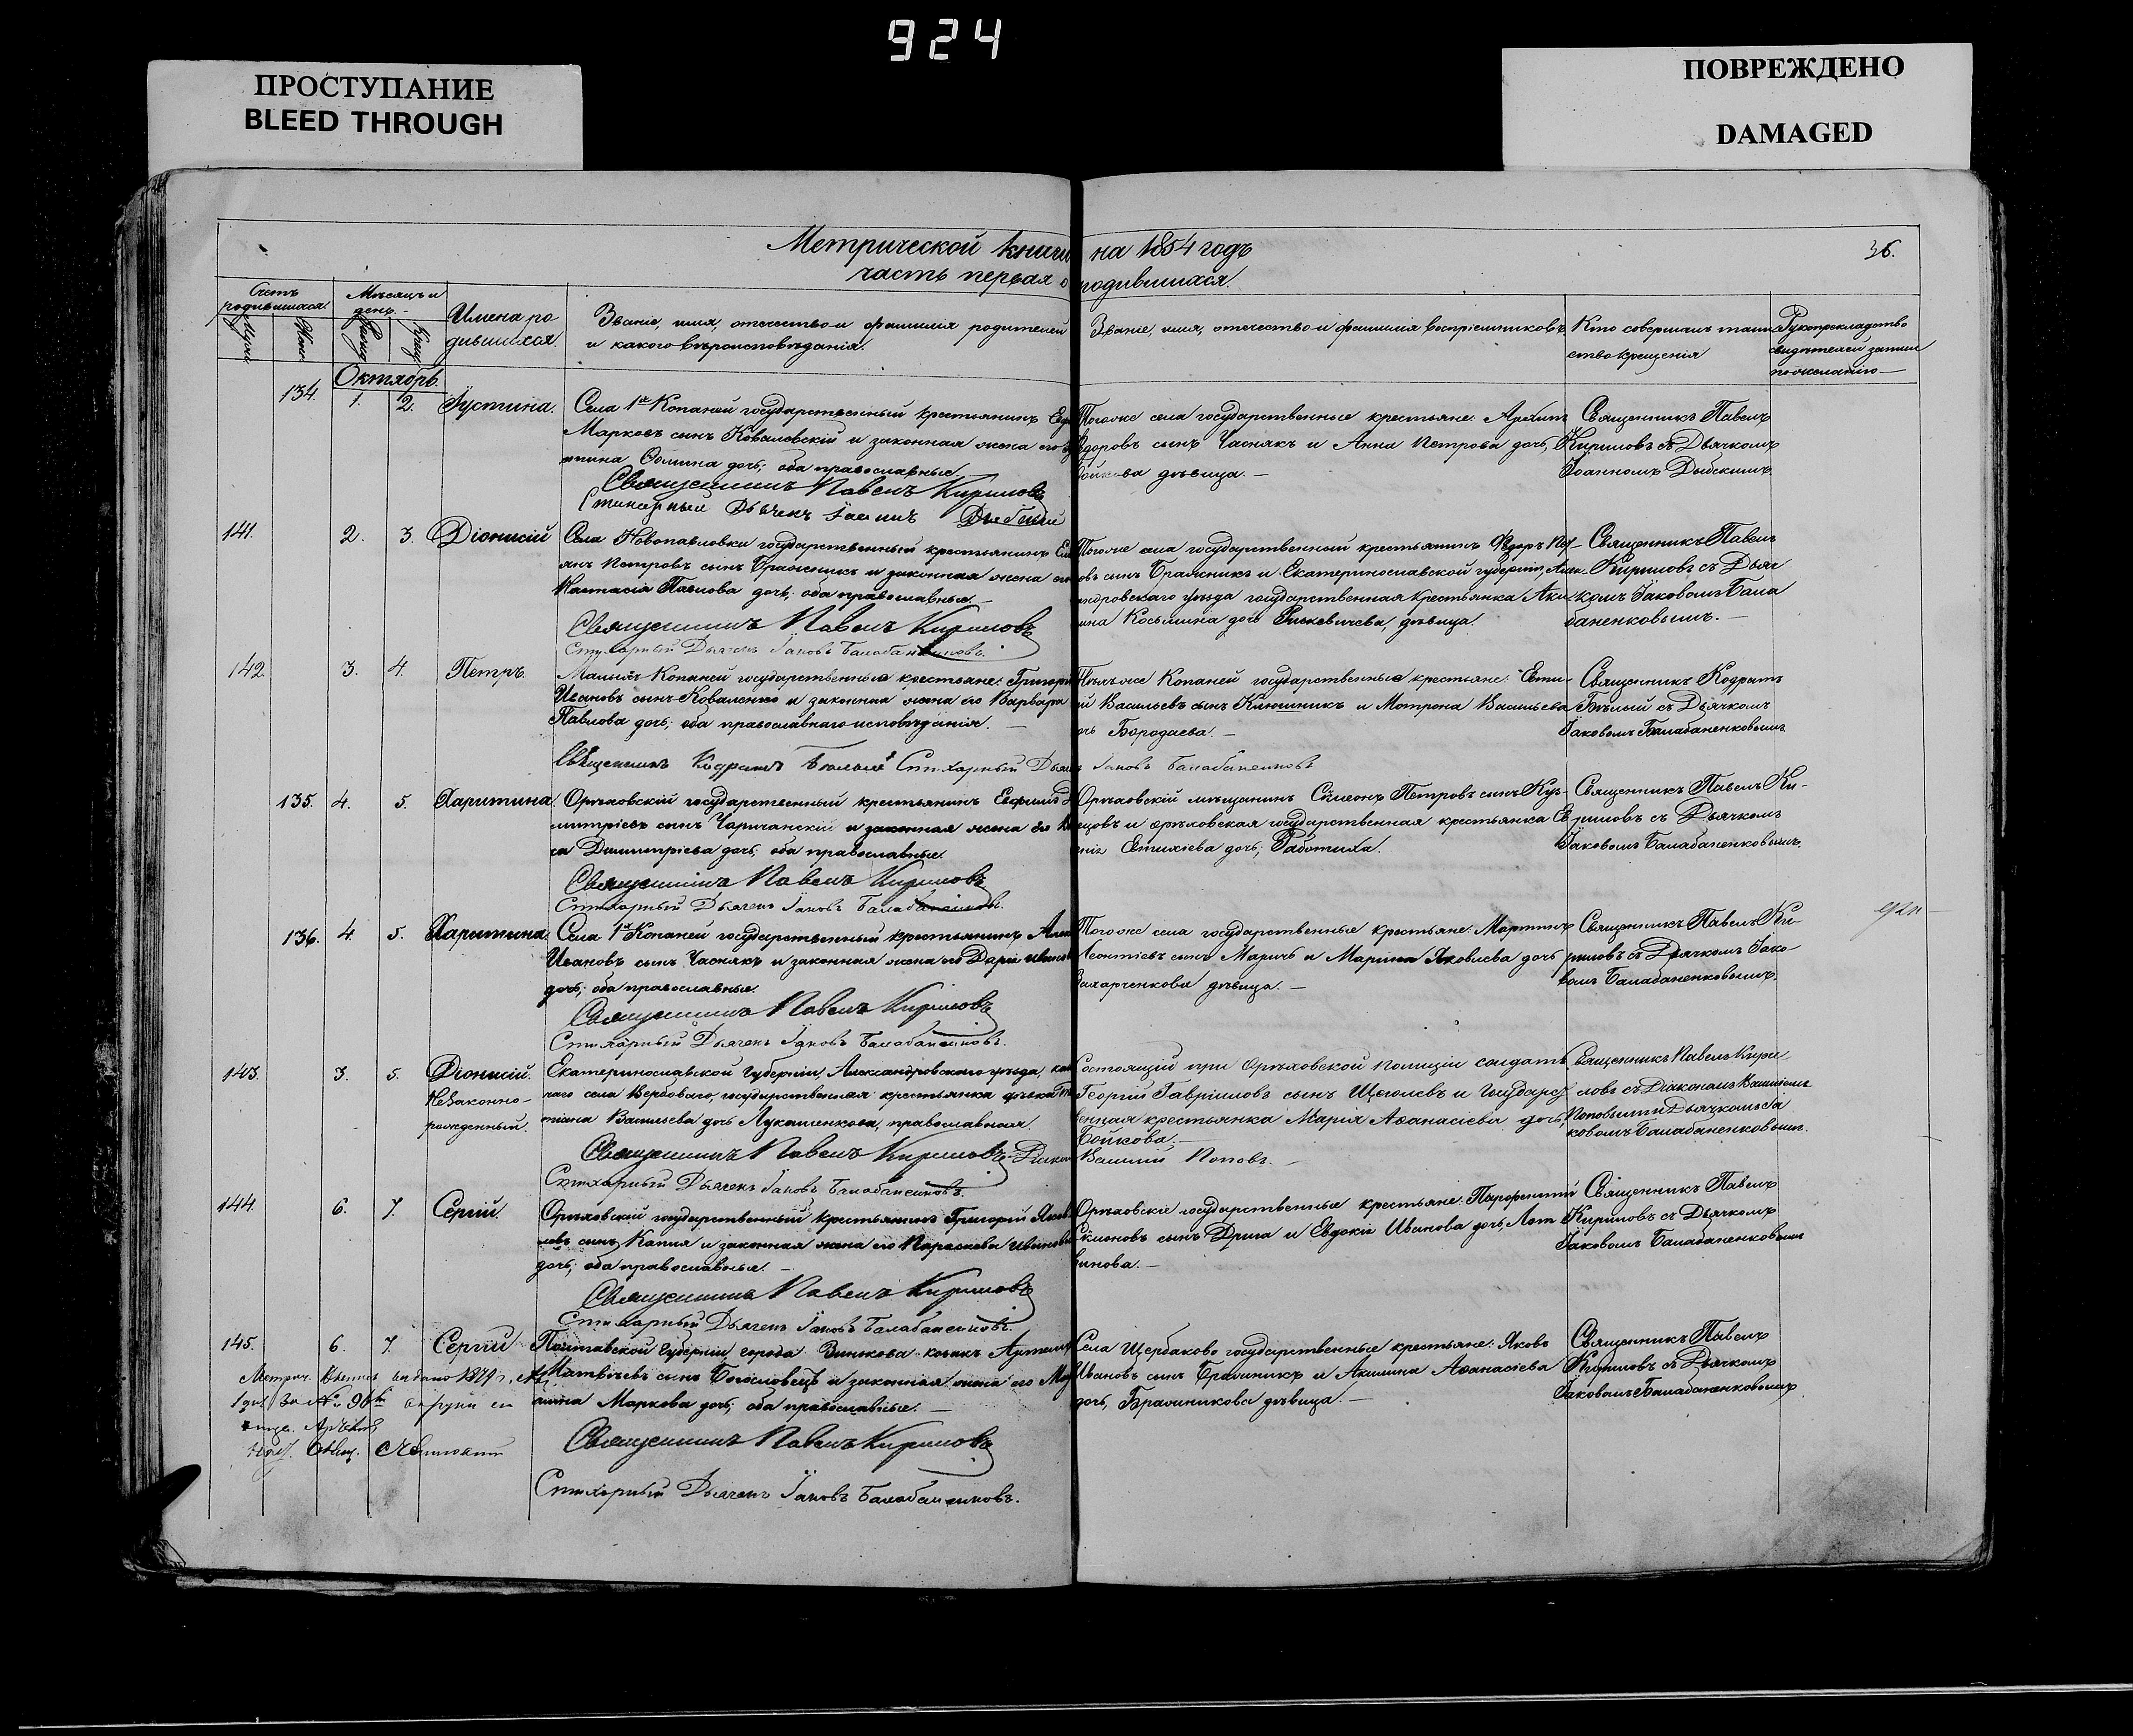 924
ПРОСТУПАНИЕ
BLEED THROUGH
ПОВРЕЖДЕНО
DAMAGED
Метрической книги на 1854 годъ
часть первая о родившихся.
36.
Счетъ родившихся
Мѣсяцъ и день.
Имена родившихся.
Званіе, имя, отечество и фамилія родителей
и какого вѣроисповѣданія.
Званіе, имя, отечество и фамилія воспріемниковъ
Кто совершалъ таинство крещенія
Рукоприкладство
свидѣтелей записи
по желанію
Октябрь.
134. 1. 2. Іустина.
Села 1й Копаней государственный крестьянинъ
Марковъ сынъ Ковалевскій и законная жена его
Ѳомина дочь; оба православные.
Священникъ Павелъ Кириловъ
Стихарный Дьячекъ
Тогоже села государственные крестьяне:
Ѳедоровъ сынъ Часнякъ и Анна Петрова дочь,
Бойкова дѣвица. —
Священникъ Павелъ
Кириловъ съ Дьячкомъ
Іоанномъ
141. 2. 3. Діонисій
Села Новопавловки государственный крестьянинъ
Петровъ сынъ Бражникъ и законная жена его
Настасія Павлова дочь; оба православные. —
Священникъ Павелъ Кириловъ
Стихарный Дьячекъ Іаковъ Балабаненковъ.
Тогоже села государственный крестьянинъ Ѳедоръ Пет-
ровъ сынъ Бражникъ и Екатеринославской губерніи, Алек-
сандровскаго уѣзда государственная крестьянка
Косьмина дочь дѣвица.
Священникъ Павелъ
Кириловъ съ Дьяч-
комъ Іаковомъ Бала-
баненковымъ. —
142. 3. 4. Петръ.
Малыхъ Копаней государственные крестьяне: Григорій
Ивановъ сынъ Коваленко и законная жена его Варвара
Павлова дочь; оба православнаго исповѣданія. —
Священникъ Кодратъ Бѣлый Стихарный Дьячекъ Іаковъ Балабаненковъ
Копаней государственные крестьяне:
Васильевъ сынъ Ключникъ и Мотрона Васильева
дочь Бородаева. —
Священникъ Кодратъ
Бѣлый съ Дьячкомъ
Іаковомъ Балабаненковымъ
135. 4. 5. Харитина.
Орѣховскій государственный крестьянинъ Евфимъ Ди-
митріевъ сынъ Чаричанскій и законная жена его
Димитріева дочь; оба православные.
Священникъ Павелъ Кириловъ
Стихарный Дьячекъ Іаковъ Балабаненковъ.
Орѣховскій мѣщанинъ Сѵмеонъ Петровъ сынъ Куз-
нецовъ и орѣховская государственная крестьянка
Евтихіева дочь;
Священникъ Павелъ Ки-
риловъ съ Дьячкомъ
Іаковомъ Балабаненковымъ.
136. 4. 5. Харитина.
Села 1й Копаней государственный крестьянинъ
Ивановъ сынъ Часнякъ и законная жена его Дарія Иванова
дочь; оба православные.
Священникъ Павелъ Кириловъ
Стихарный Дьячекъ Іаковъ Балабаненковъ.
Тогоже села государственные крестьяне: Мартинъ
Леонтіевъ сынъ Маричъ и Марина Яковлева дочь
Захарченкова дѣвица. —
Священникъ Павелъ Ки-
риловъ съ Дьячкомъ Іако-
вомъ Балабаненковымъ.
143. 3. 5. Діонисій.
Незаконно-
рожденный.
Екатеринославской Губерніи, Александровскаго уѣзда,
села Вербоваго, государственная крестьянка дѣвка Та-
тіана Васильева дочь Лукашенкова, православная.
Священникъ Павелъ Кириловъ Діаконъ Василій Поповъ. —
Стихарный Дьячекъ Іаковъ Балабаненковъ.
Состоящій при Орѣховской Полиціи солдатъ
Георгій Гавріиловъ сынъ и Государст-
венная крестьянка Марія Аѳанасіева дочь,
Бойкова. —
Священникъ Павелъ Кири-
ловъ съ Діакономъ Василіемъ
Поповымъ и Дьячкомъ Іа-
ковомъ Балабаненковымъ.
144. 6. 7. Сергій.
Орѣховскій государственный крестьянинъ Григорій Яков-
левъ сынъ Капия и законная жена его Параскева Иванова
дочь; оба православные. —
Священникъ Павелъ Кириловъ
Стихарный Дьячекъ Іаковъ Балабаненковъ.
Орѣховскіе государственные крестьяне: Парфентій
сынъ Дрига и Евдокія Иванова дочь,
Священникъ Павелъ
Кириловъ съ Дьячкомъ
Іаковомъ Балабаненковымъ
145. 6. 7. Сергій
Полтавской Губерніи, города Зинкова козакъ Артемій
Матвѣевъ сынъ Богословецъ и законная жена его
Маркова дочь; оба православные. —
Священникъ Павелъ Кириловъ
Стихарный Дьячекъ Іаковъ Балабаненковъ.
Села Щербаково государственные крестьяне: Яковъ
Ивановъ сынъ Бражникъ и Акилина Аѳанасіева
дочь, Бражникова дѣвица. —
Священникъ Павелъ
Кириловъ съ Дьячкомъ
Іаковомъ Балабаненковымъ
Метрич. выдано 1879 г.
за № 96